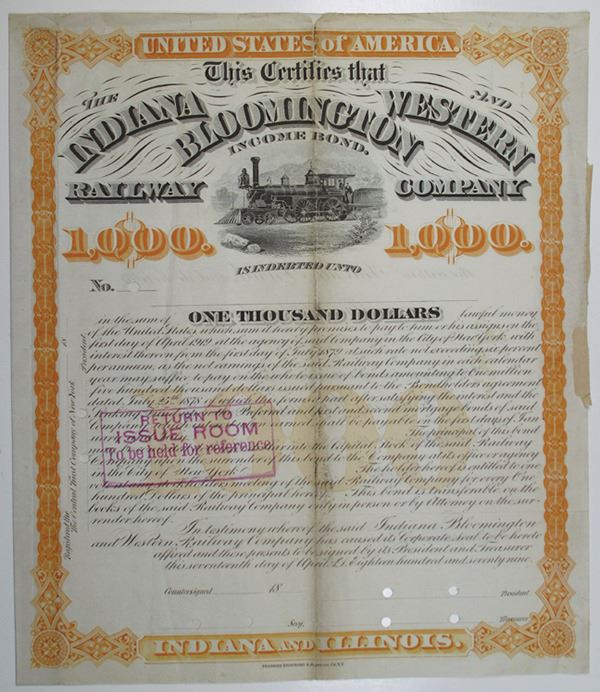 UNITED STATES of AMERICA.
This Certifies that
THE INDIANA BLOOMINGTON AND WESTERN
INCOME BOND.
RAILWAY COMPANY
1,000. 1,000.
IS INDEBTED UNTO
No.
in the sum of ONE THOUSAND DOLLARS lawful money
of the United States, which sum it hereby promises to pay to him or his assigns on the
first day of April 1919 at the agency of said Company in the City of New York with
interest thereon from the first day of July 1879 at such rate not exceeding six percent
perannum, as the net earnings of the said Railway Company in each calendar
year may suffice to pay on the whole series of bonds amounting to One million
five hundred thousand dollars issued pursuant to the Bondholders agreement
dated, July 25th 1878 of which this forms a part after satisfying the interest and the
Preferred and first and second mortgage bonds of said
Company earned shall be payable on the first days of Jan
The principal of this bond
into the Capital Stock of the said Railway
Company upon the of this bond to the Company at its office or agency
in the City of New York. The holder hereof is entitled to one
vote at meeting of the said Railway Company for every One
hundred Dollars of the principal hereof. This bond is transferable on the
books of the said Railway Company only in person or by Attorney on the sur-
render hereof.
In testimony whereof the said Indiana Bloomington
and Western Railway Company has caused its Corporate Seal to be hereto
affixed and these presents to be signed by its President and Treasurer
this seventeenth day of April A.D. Eighteen hundred and seventy nine.
RETURN TO
ISSUE ROOM
To be held for reference
Registered by The Central Trust Company of New York 18 President
Countersigned 18 President
Secy. Treasurer
INDIANA AND ILLINOIS.